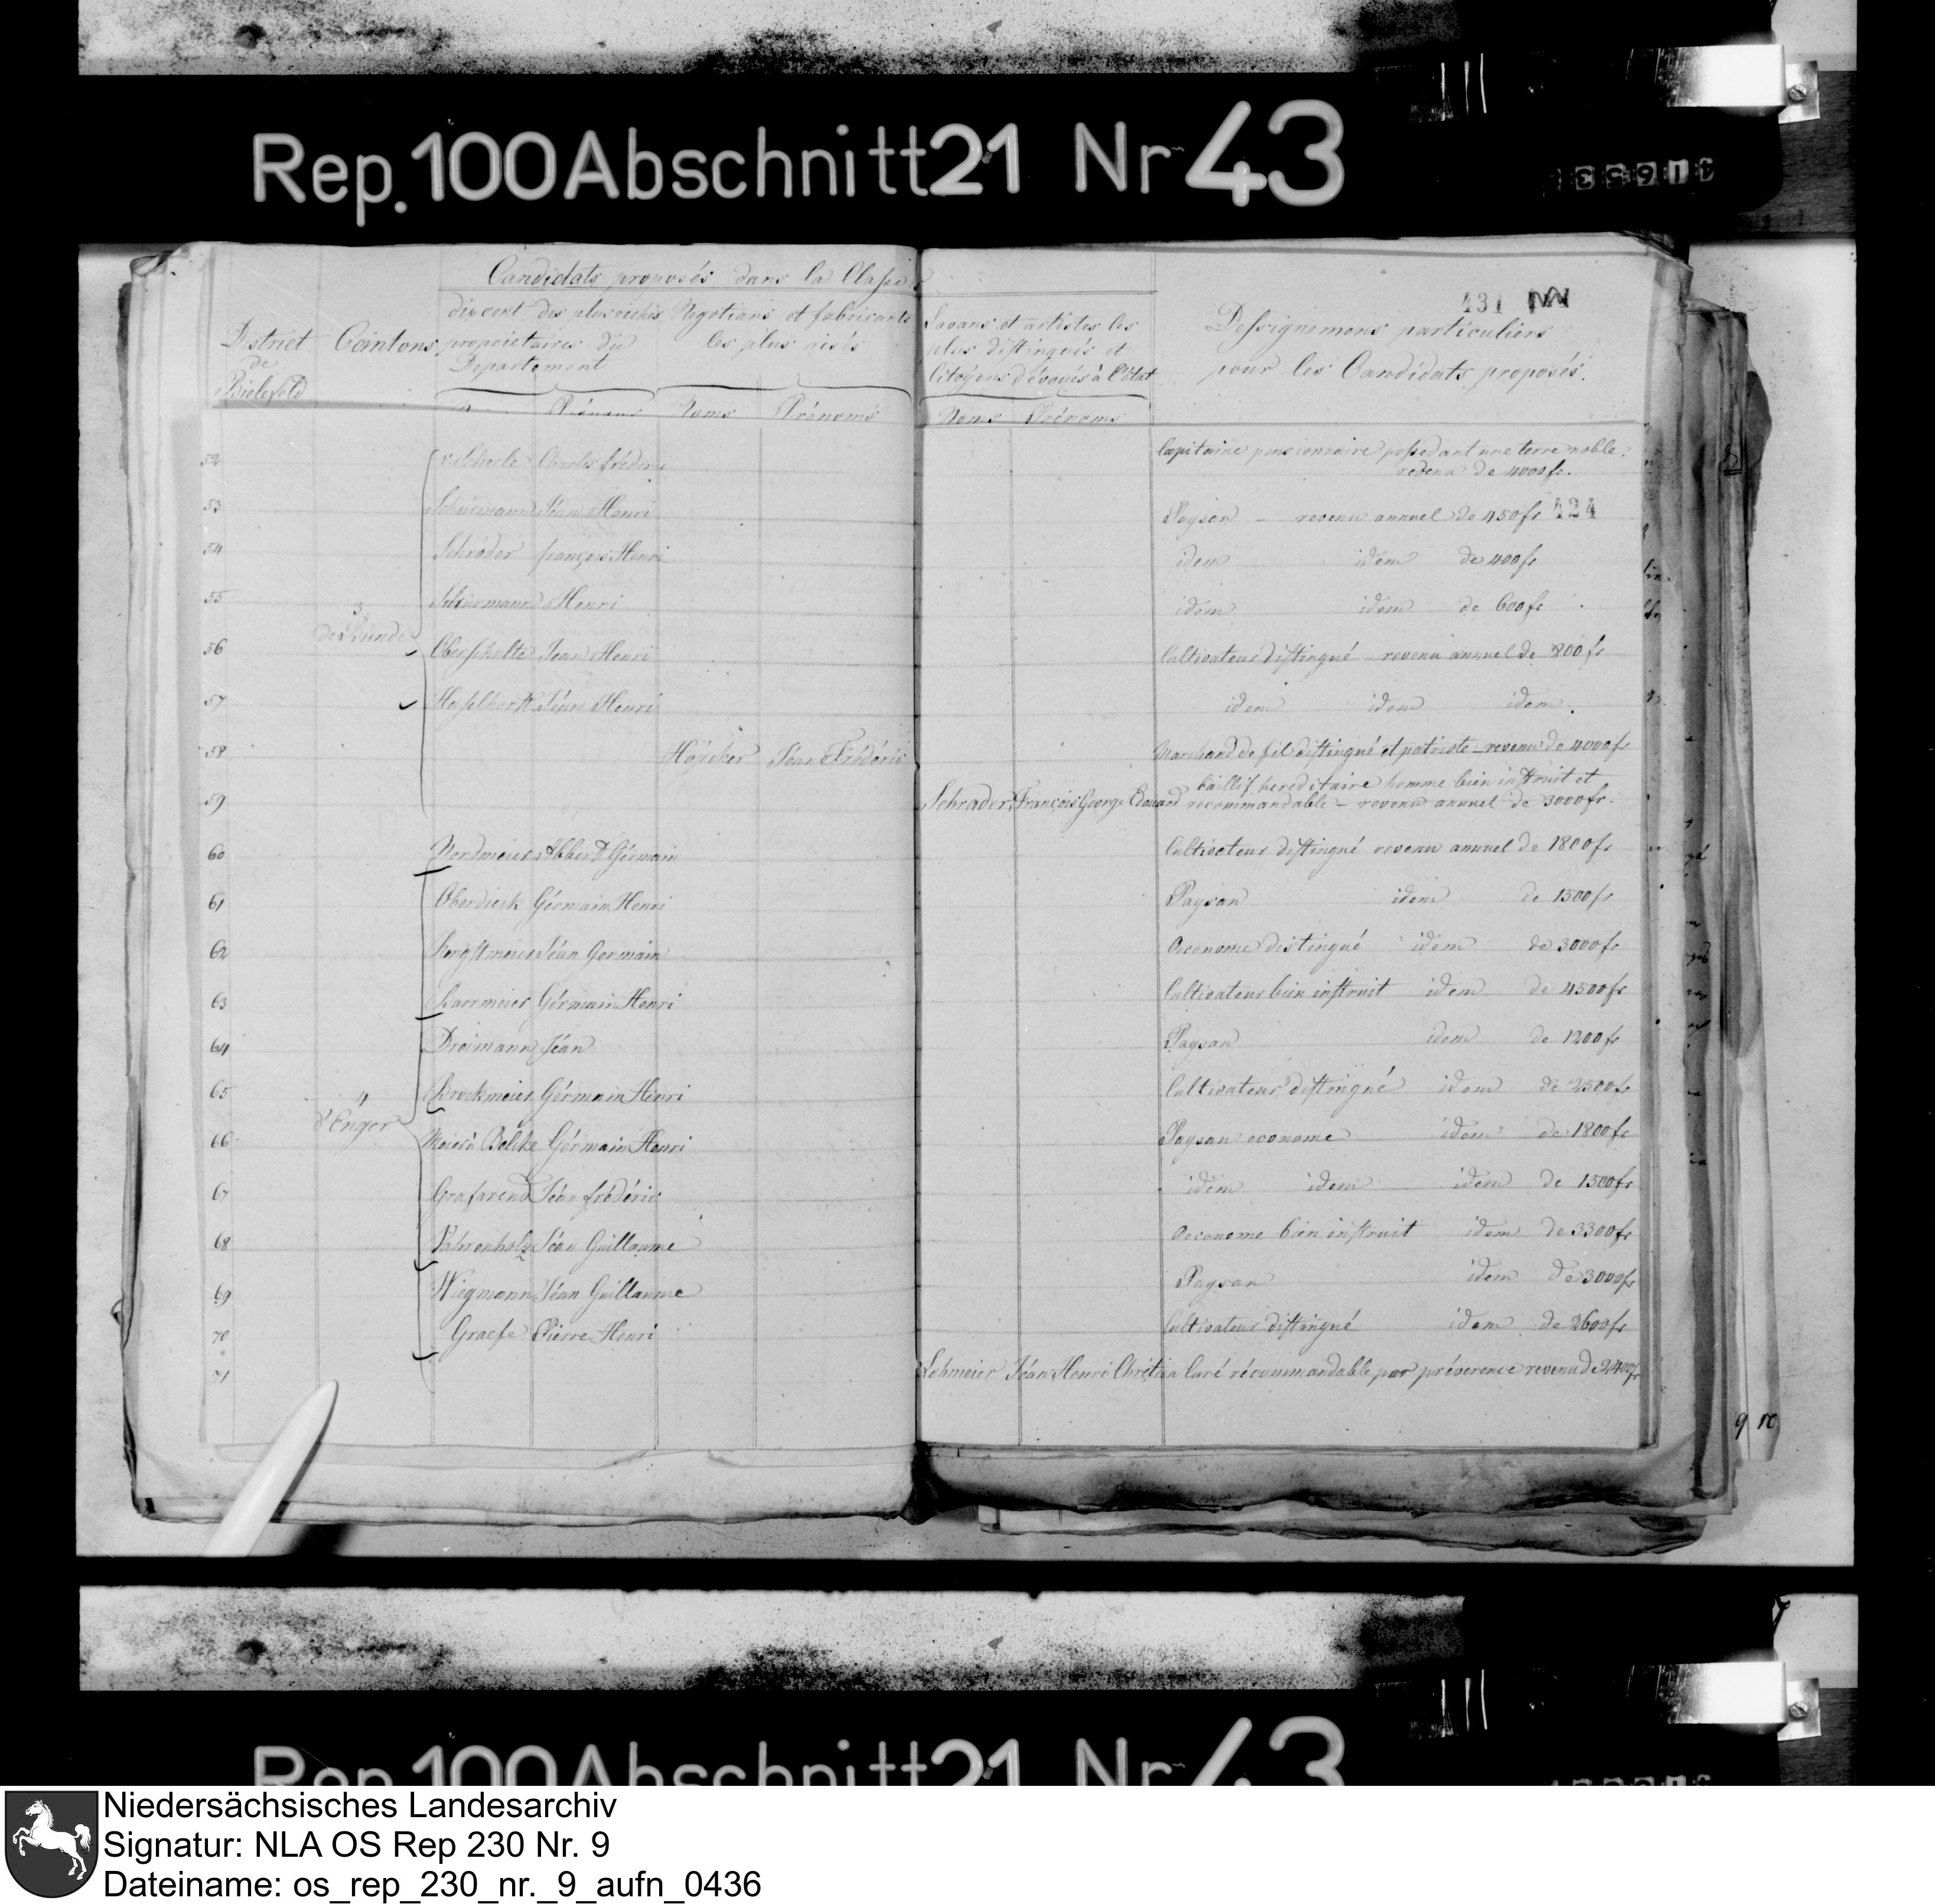 Rep. 100 Abschnitt 21 Nr 43
Candidats proposés dans la Classe
431
District de Bielefeld
Cantons
six cent des plus riches propriétaires du Departement
Negotians et fabricants les plus aisés
Savans et artistes les plus distingués et Citoyens dévoués à l'état
particuliers pour les Candidats proposés.
Prénoms Noms Prénoms Noms Prénoms
52 Charles fréderic Capitaine pensionnaire possedant une terre noble.
revenu de 4000 fr.
53 Schürmann Jéan Henri Paysan — revenu annuel de 450 fr 424
54 Schröder françois Henri idem idem de 400 fr
55 Schürmann Henri idem idem de 600 fr
3
de Bünde
56 Oberschulte Jean Henri Cultivateur distingué revenu annuel de 800 fr
57 Jéan Henri idem idem idem.
58 Höpcker Jéan Frédéric Marchand de fil distingué et patriote — revenu de 4000 fr
59 Schrader François George Edouard baillif hereditaire homme bien instruit et
recommandable — revenu annuel de 3000 fr.
60 Nordmeier Albert Gérmain Cultivateur distingué revenu annuel de 1800 fr
61 Oberdieck Gérmain Henri Paysan idem de 1500 fr
62 Jéan Germain Oeconome distingué idem de 3000 fr
63 Barrmeier Gérmain Henri Cultivateur bien instruit idem de 4500 fr
64 Dreimann Jéan Paysan idem de 1200 fr
65 Brockmeier Gérmain Henri Cultivateur distingué idem de 2500 fr
4
d'Enger
66 Meier à Bolcke Gérmain Henri Paysan econome idem de 1800 fr
67 Grafarend Jéan frédéric idem idem idem de 1500 fr
68 Vahrenholz Jéan Guillaume Oeconome bien instruit idem de 3300 fr
69 Wiegmann Jéan Guillaume Paysan idem de 3000 fr
70 Graefe Pierre Henri Cultivateur distingué idem de 2600 fr
71 Lohmeier Jéan Henri Chrétien Curé récommandable par préverence revenu de 2400 fr
Rep. 100 Abschnitt 21 Nr 43
Niedersächsisches Landesarchiv
Signatur: NLA OS Rep 230 Nr. 9
Dateiname: os_rep_230_nr._9_aufn_0436